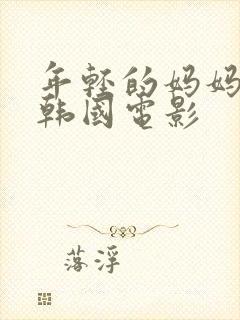 年轻的妈妈
韩國電影
落浮